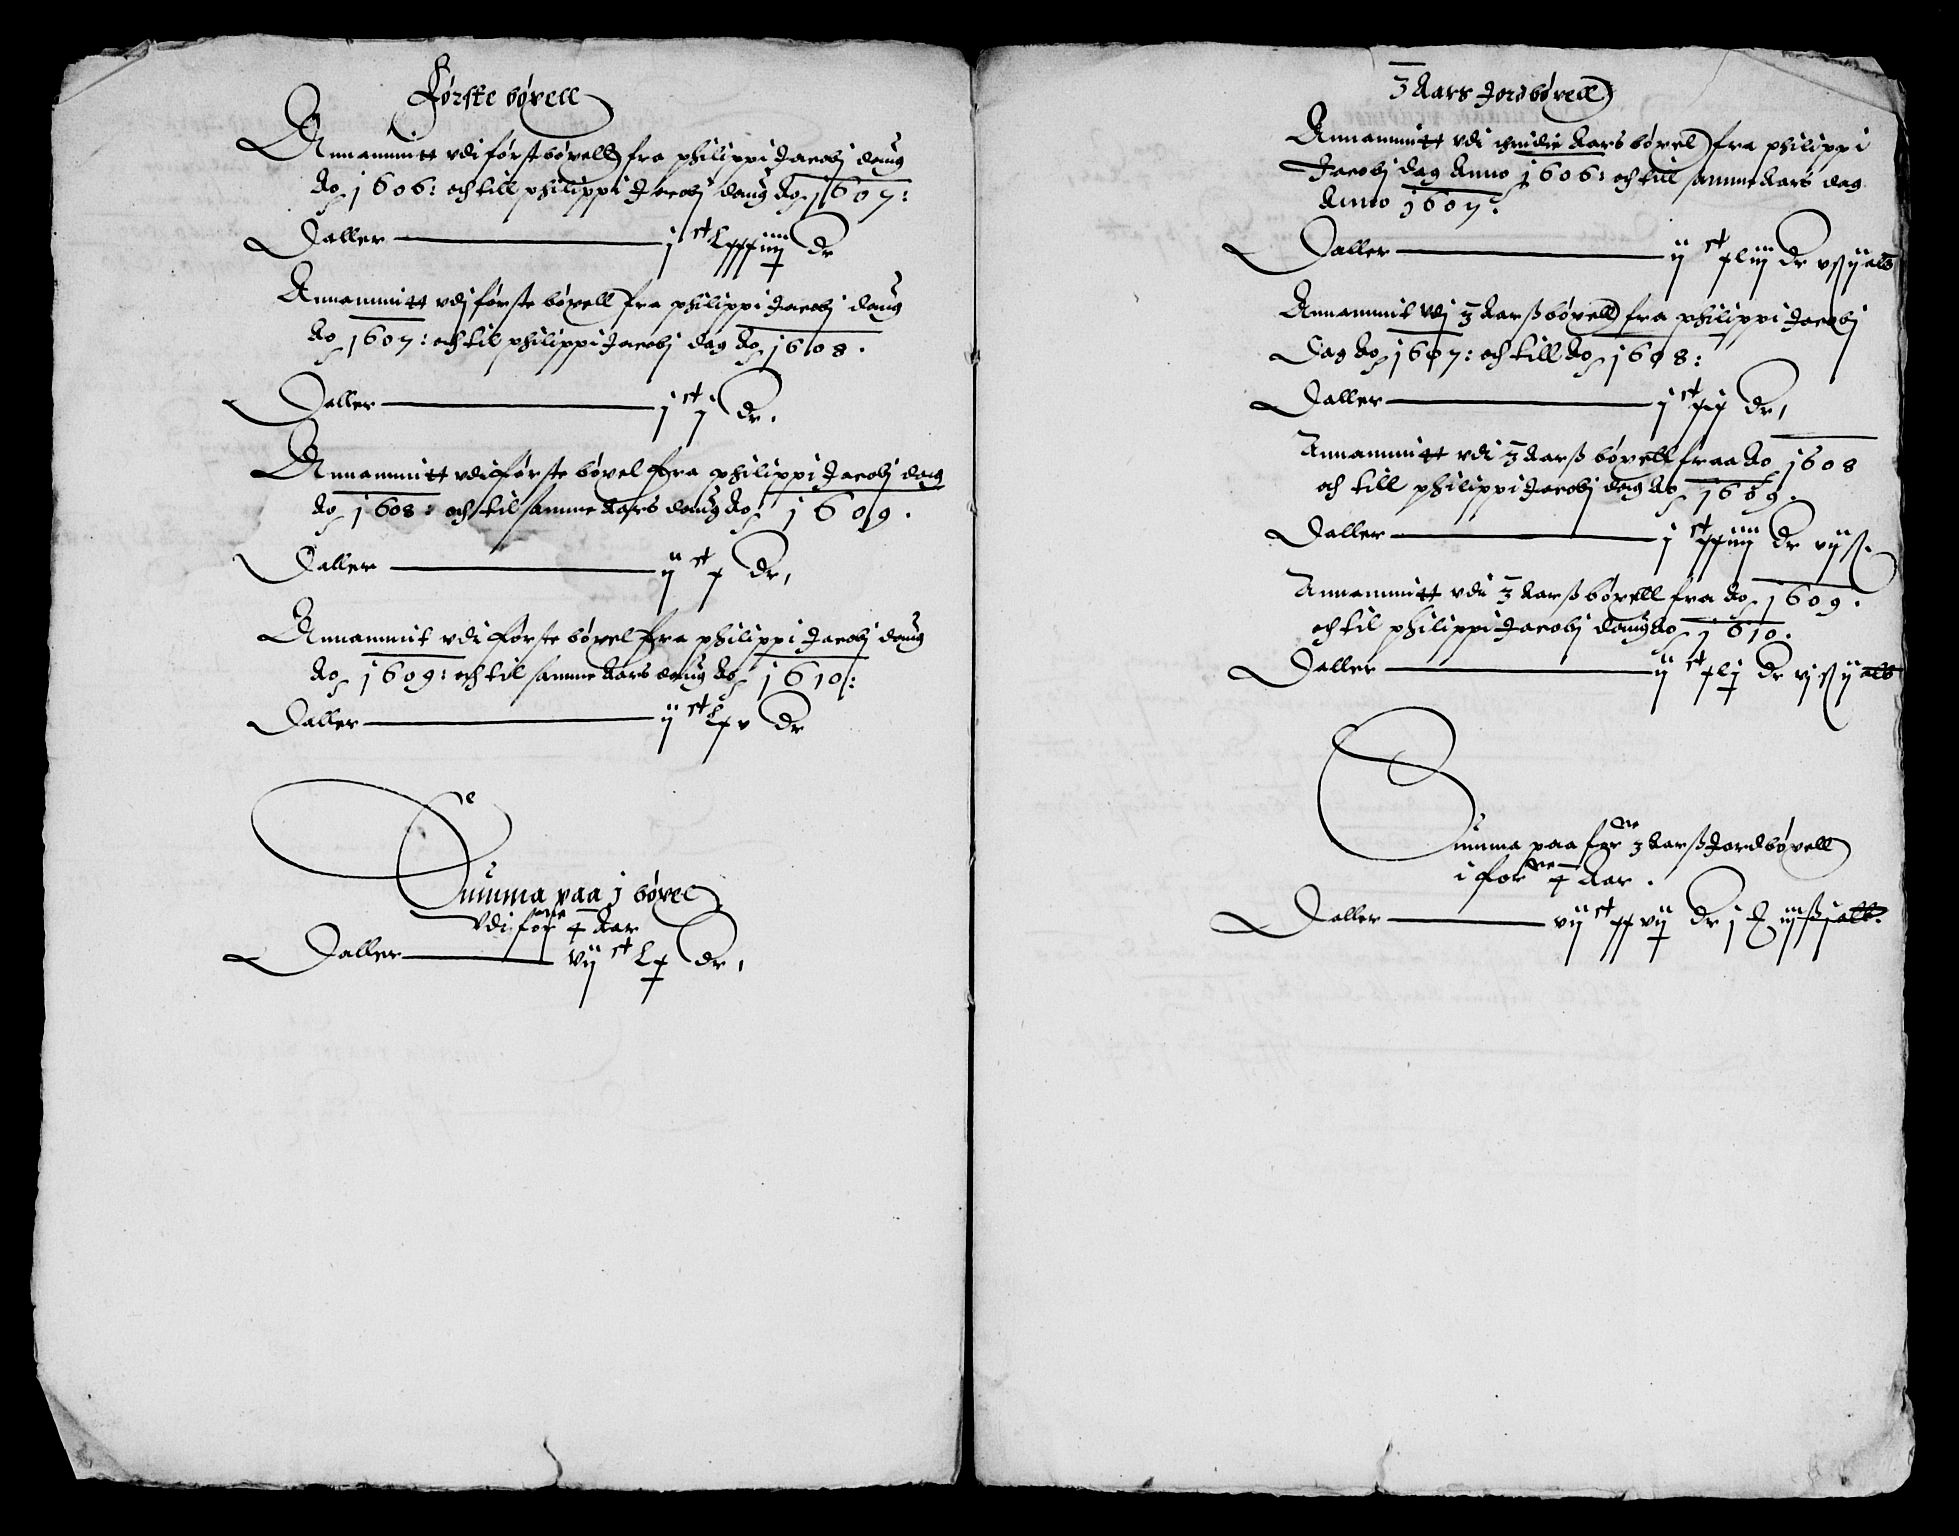 Første bøxell
Annammitt vdi først bøxell fra philippi Jacobj daug
Ao 1606: och till philippi Jacobj daug Ao 1607:
Daller j ct Lxxxiiij dr
Annammitt vdj første bøxell fra philippi Jacobj daug
Ao 1607: och til philippi Jacobj dag Ao 1608.
Daller j ct j dr.
Annammitt vdi første bøxel fra philippi Jacobj dag
Ao 1608: och til samme Aars daug Ao 1609.
Daller ij ct x dr,
Annammit vdi første bøxel fra philippi Jacobj daug
Ao 1609: och til samme Aars daug Ao 1610:
Daller ij ct Lx v dr
Summa paa j bøxel
Vdi forne 4 Aar
Daller vij ct Lx dr,
3 Aars Jordbøxell
Annammitt vdi thridie Aars bøxel fra philippi
Jacobj dag Anno 1606: och till samme Aars dag
Anno 1607.
Daller ij ct xliij dr v ß ij alb
Annammit vdj 3 Aarß bøxell fra philippi Jacobj
Dag Ao 1607: och till Ao 1608:
Daller j ct xix dr,
Annammitt vdi 3 Aarß bøxell fraa Ao 1608
och till philippi Jacobj dag Ao 1609.
Daller j ct xxiiij dr vij ß.
Annammitt vdi 3 Aarß bøxell fra Ao 1609.
och til philippi Jacobj daug Ao 1610.
Daller ij ct xlj dr vj ß ij alb
Summa paa forne 3 Aarß Jordbøxell
i forne 4 Aar.
Daller vij ct xx vij dr j J iiij ß j alb.